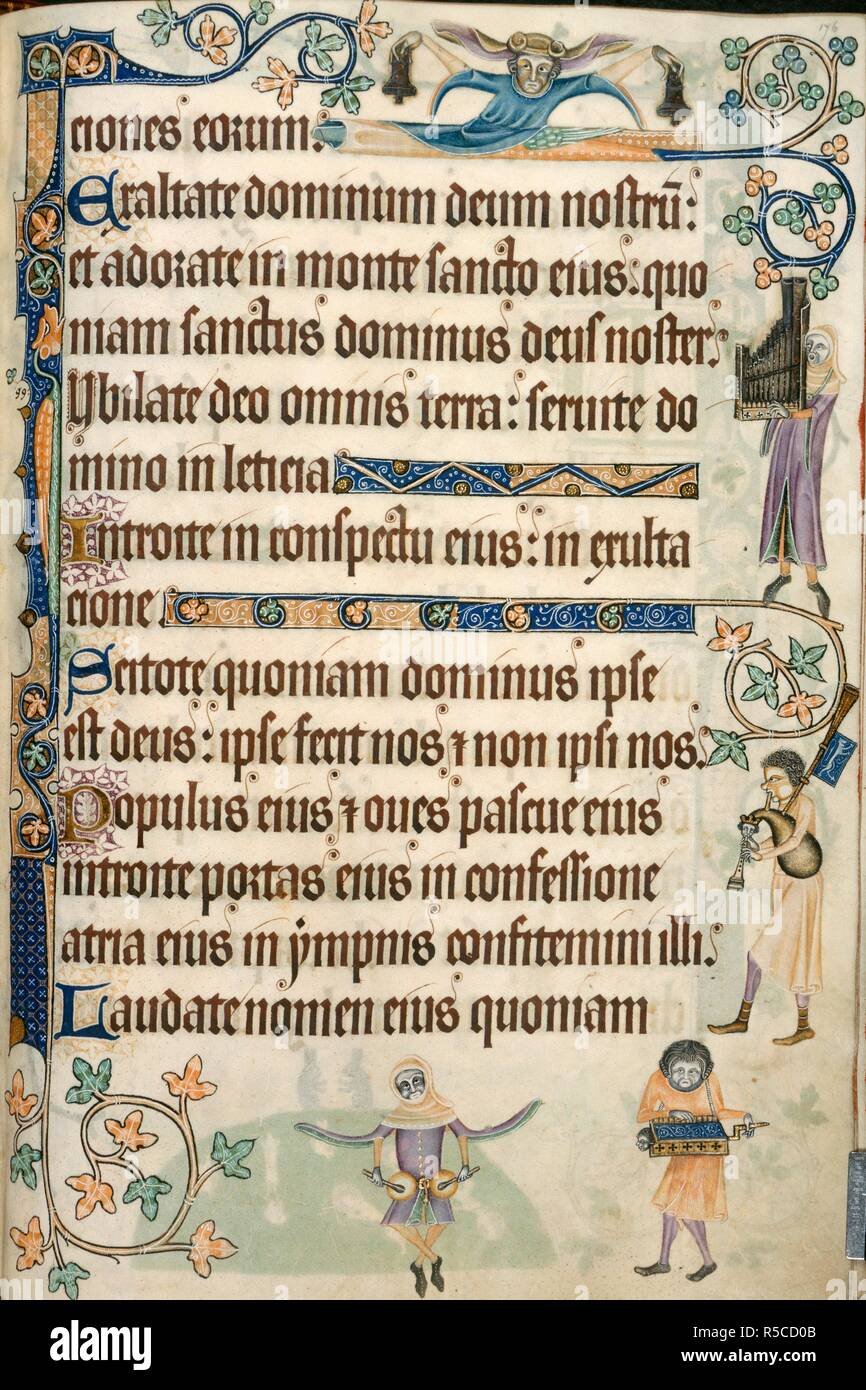 176
ciones eorum.
Exaltate dominum deum nostrū:
et adorate in monte sancto eius: quo
niam sanctus dominus deus noster.
99
Iybilate deo omnis terra: seruite do
mino in leticia
Introite in conspectu eius: in exulta
cione
Scitote quoniam dominus ipse
est deus: ipse fecit nos ⁊ non ipsi nos.
Populus eius ⁊ oues pascue eius
introite portas eius in confessione
atria eius in ẏmpnis confitemini illi.
Laudate nomen eius quoniam
a
alamy
alamy
Image ID: R5CC0B
www.alamy.com